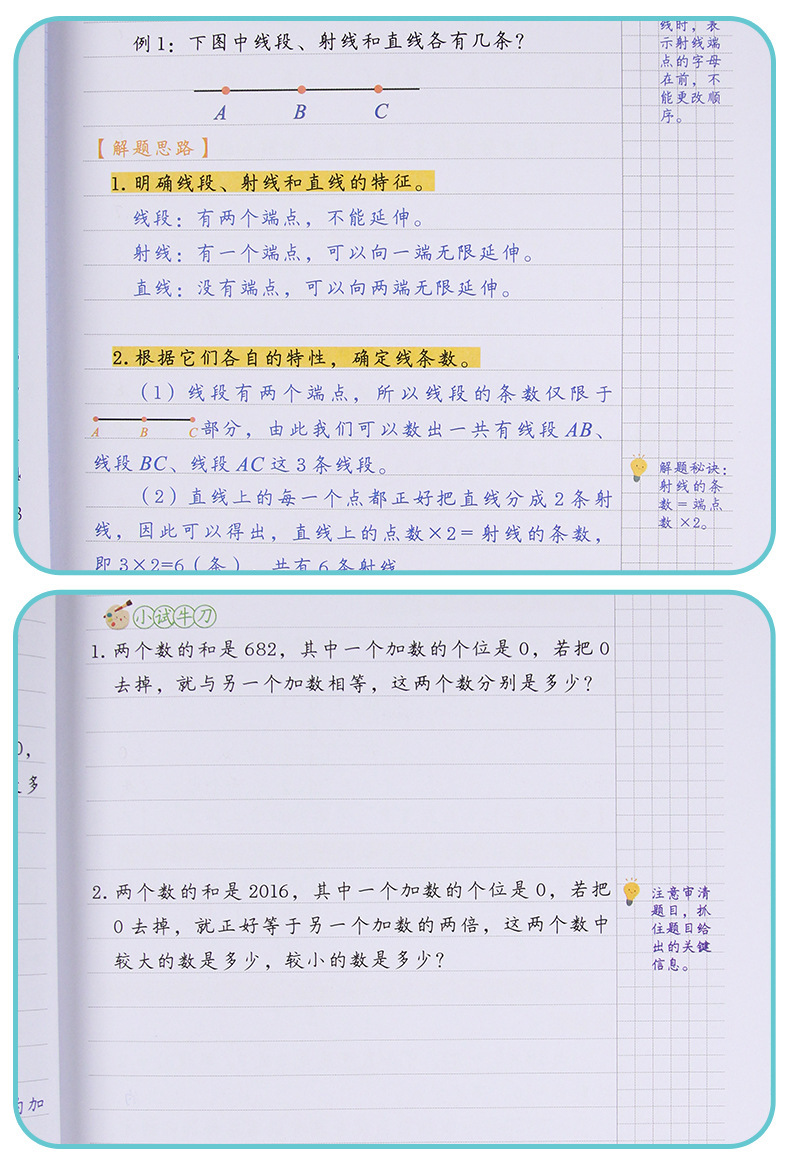 例1：下图中线段、射线和直线各有几条？
A B C
【解题思路】
1.明确线段、射线和直线的特征。
线段：有两个端点，不能延伸。
射线：有一个端点，可以向一端无限延伸。
直线：没有端点，可以向两端无限延伸。
2.根据它们各自的特性，确定线条数。
（1）线段有两个端点，所以线段的条数仅限于
A B C 部分，由此我们可以数出一共有线段AB、
线段BC、线段AC这3条线段。
（2）直线上的每一个点都正好把直线分成2条射
线，因此可以得出，直线上的点数×2=射线的条数，
即3×2=6（条），共有6条射线
线时，表
示射线端
点的字母
在前，不
能更改顺
序。
解题秘诀：
射线的条
数=端点
数×2。
小试牛刀
1.两个数的和是682，其中一个加数的个位是0，若把0
去掉，就与另一个加数相等，这两个数分别是多少？
2.两个数的和是2016，其中一个加数的个位是0，若把
0去掉，就正好等于另一个加数的两倍，这两个数中
较大的数是多少，较小的数是多少？
注意审清
题目，抓
住题目给
出的关键
信息。
0，
多
加